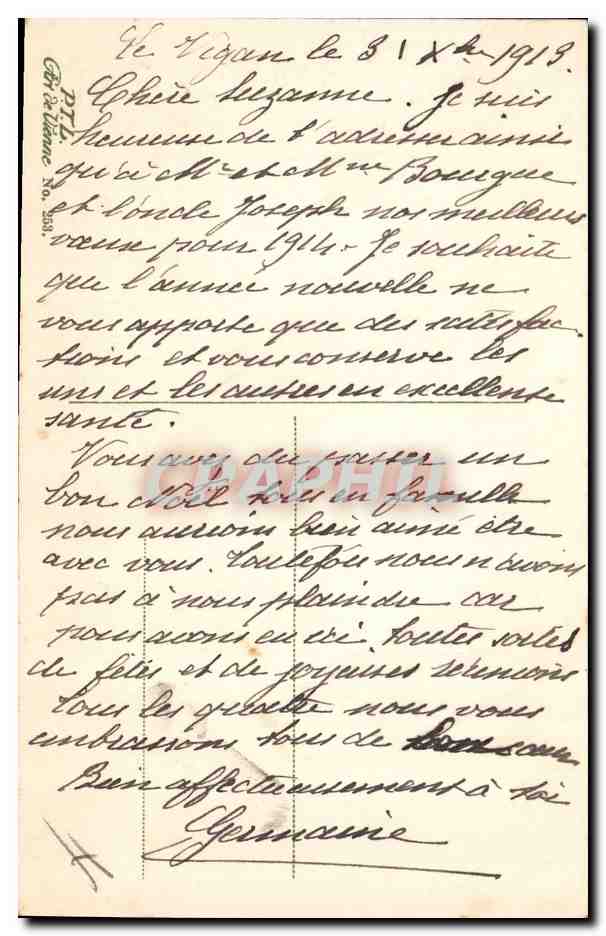 Le Vigan le 31 Xbre 1913.
Chère Suzanne. Je suis
heureuse de t'adresser ainsi
qu'à Mr et Mme Bourgue
et l'oncle Joseph nos meilleurs
vœux pour 1914. Je souhaite
que l'année nouvelle ne
vous apporte que des satisfac-
tions et vous conserve les
uns et les autres en excellente
santé.
Vous avez dû passer un
bon Noël tous en famille
nous aurions bien aimé être
avec vous. Toutefois nous n'avons
pas à nous plaindre car
nous avons eu ici toutes sortes
de fêtes et de joyeuses réunions
Tous les quatre nous vous
embrassons tous de bon cœur
Bien affectueusement à toi
Germaine
P.T.L.
No. 253.
CPAPHIL